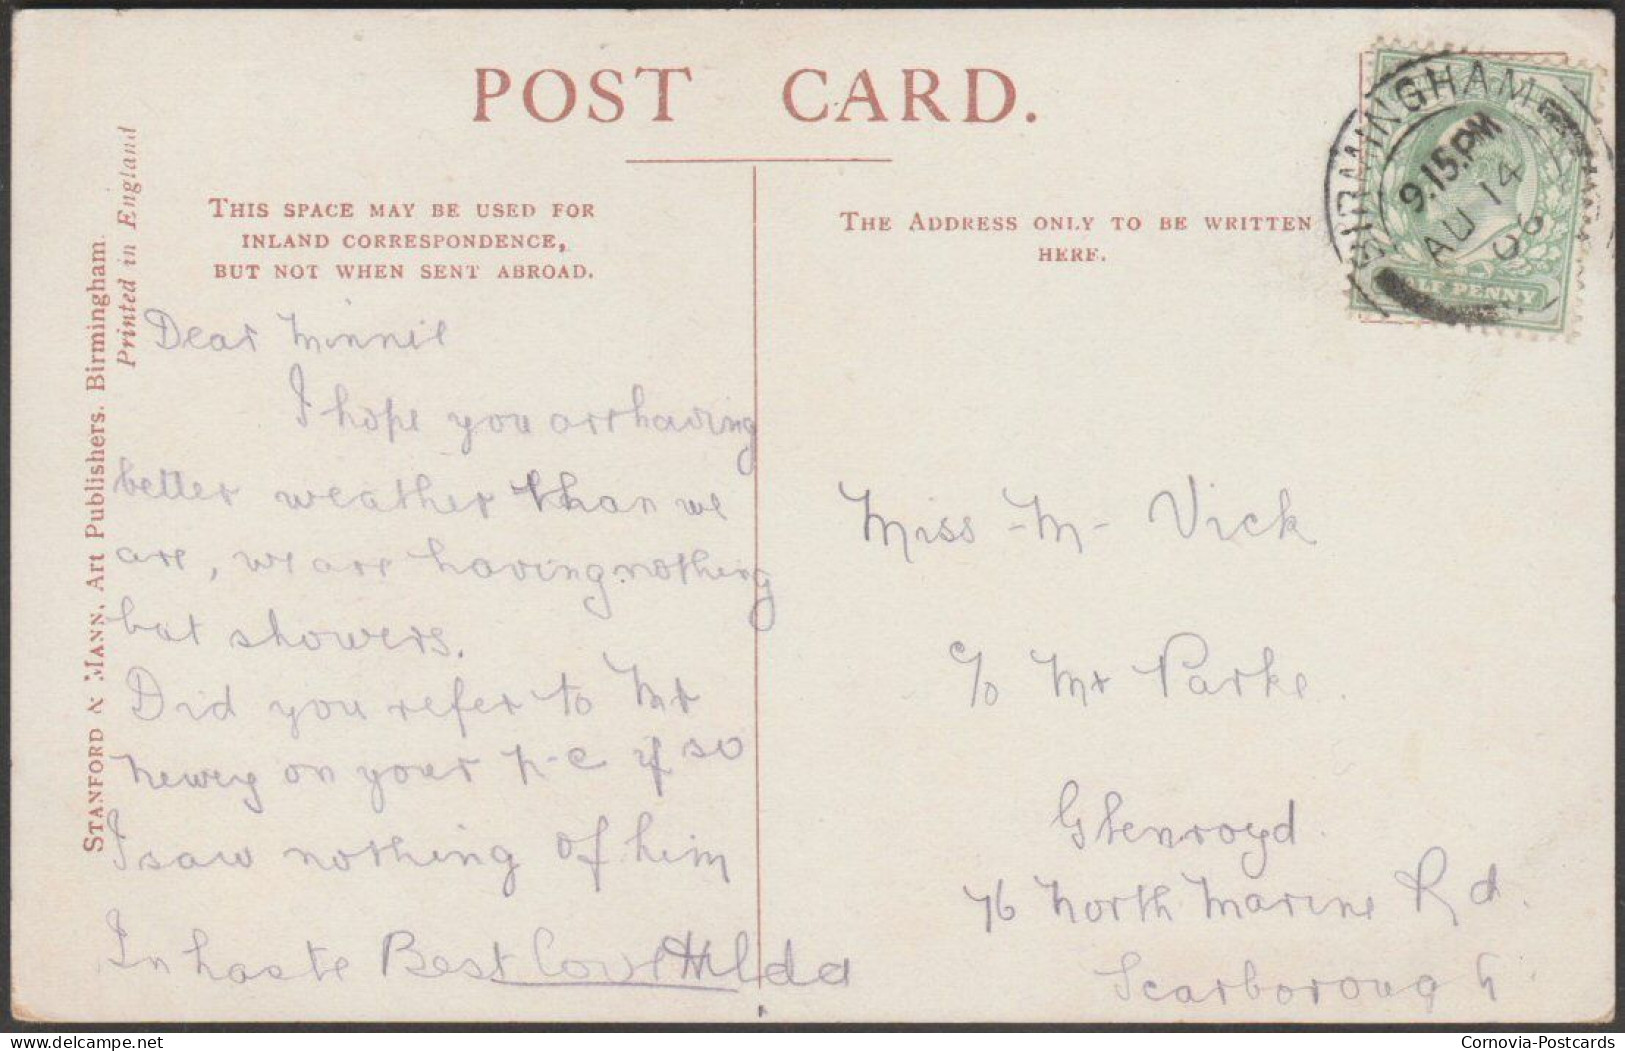 POST CARD.
THIS SPACE MAY BE USED FOR
INLAND CORRESPONDENCE,
BUT NOT WHEN SENT ABROAD.
THE ADDRESS ONLY TO BE WRITTEN
HERE.
BIRMINGHAM
9.15.PM
AU 14
06
HALF PENNY
STANFORD & MANN, Art Publishers. Birmingham.
Printed in England
Dear Minnie
I hope you are having
better weather than we
are, we are having nothing
but showers.
Did you refer to Mr
Newey on your p-c if so
I saw nothing of him
In haste Best Love Hilda
Miss -M- Vick
c/o Mr Parke.
Glenroyd.
76 North Marine Rd.
Scarborough.
Cornovia-Postcards